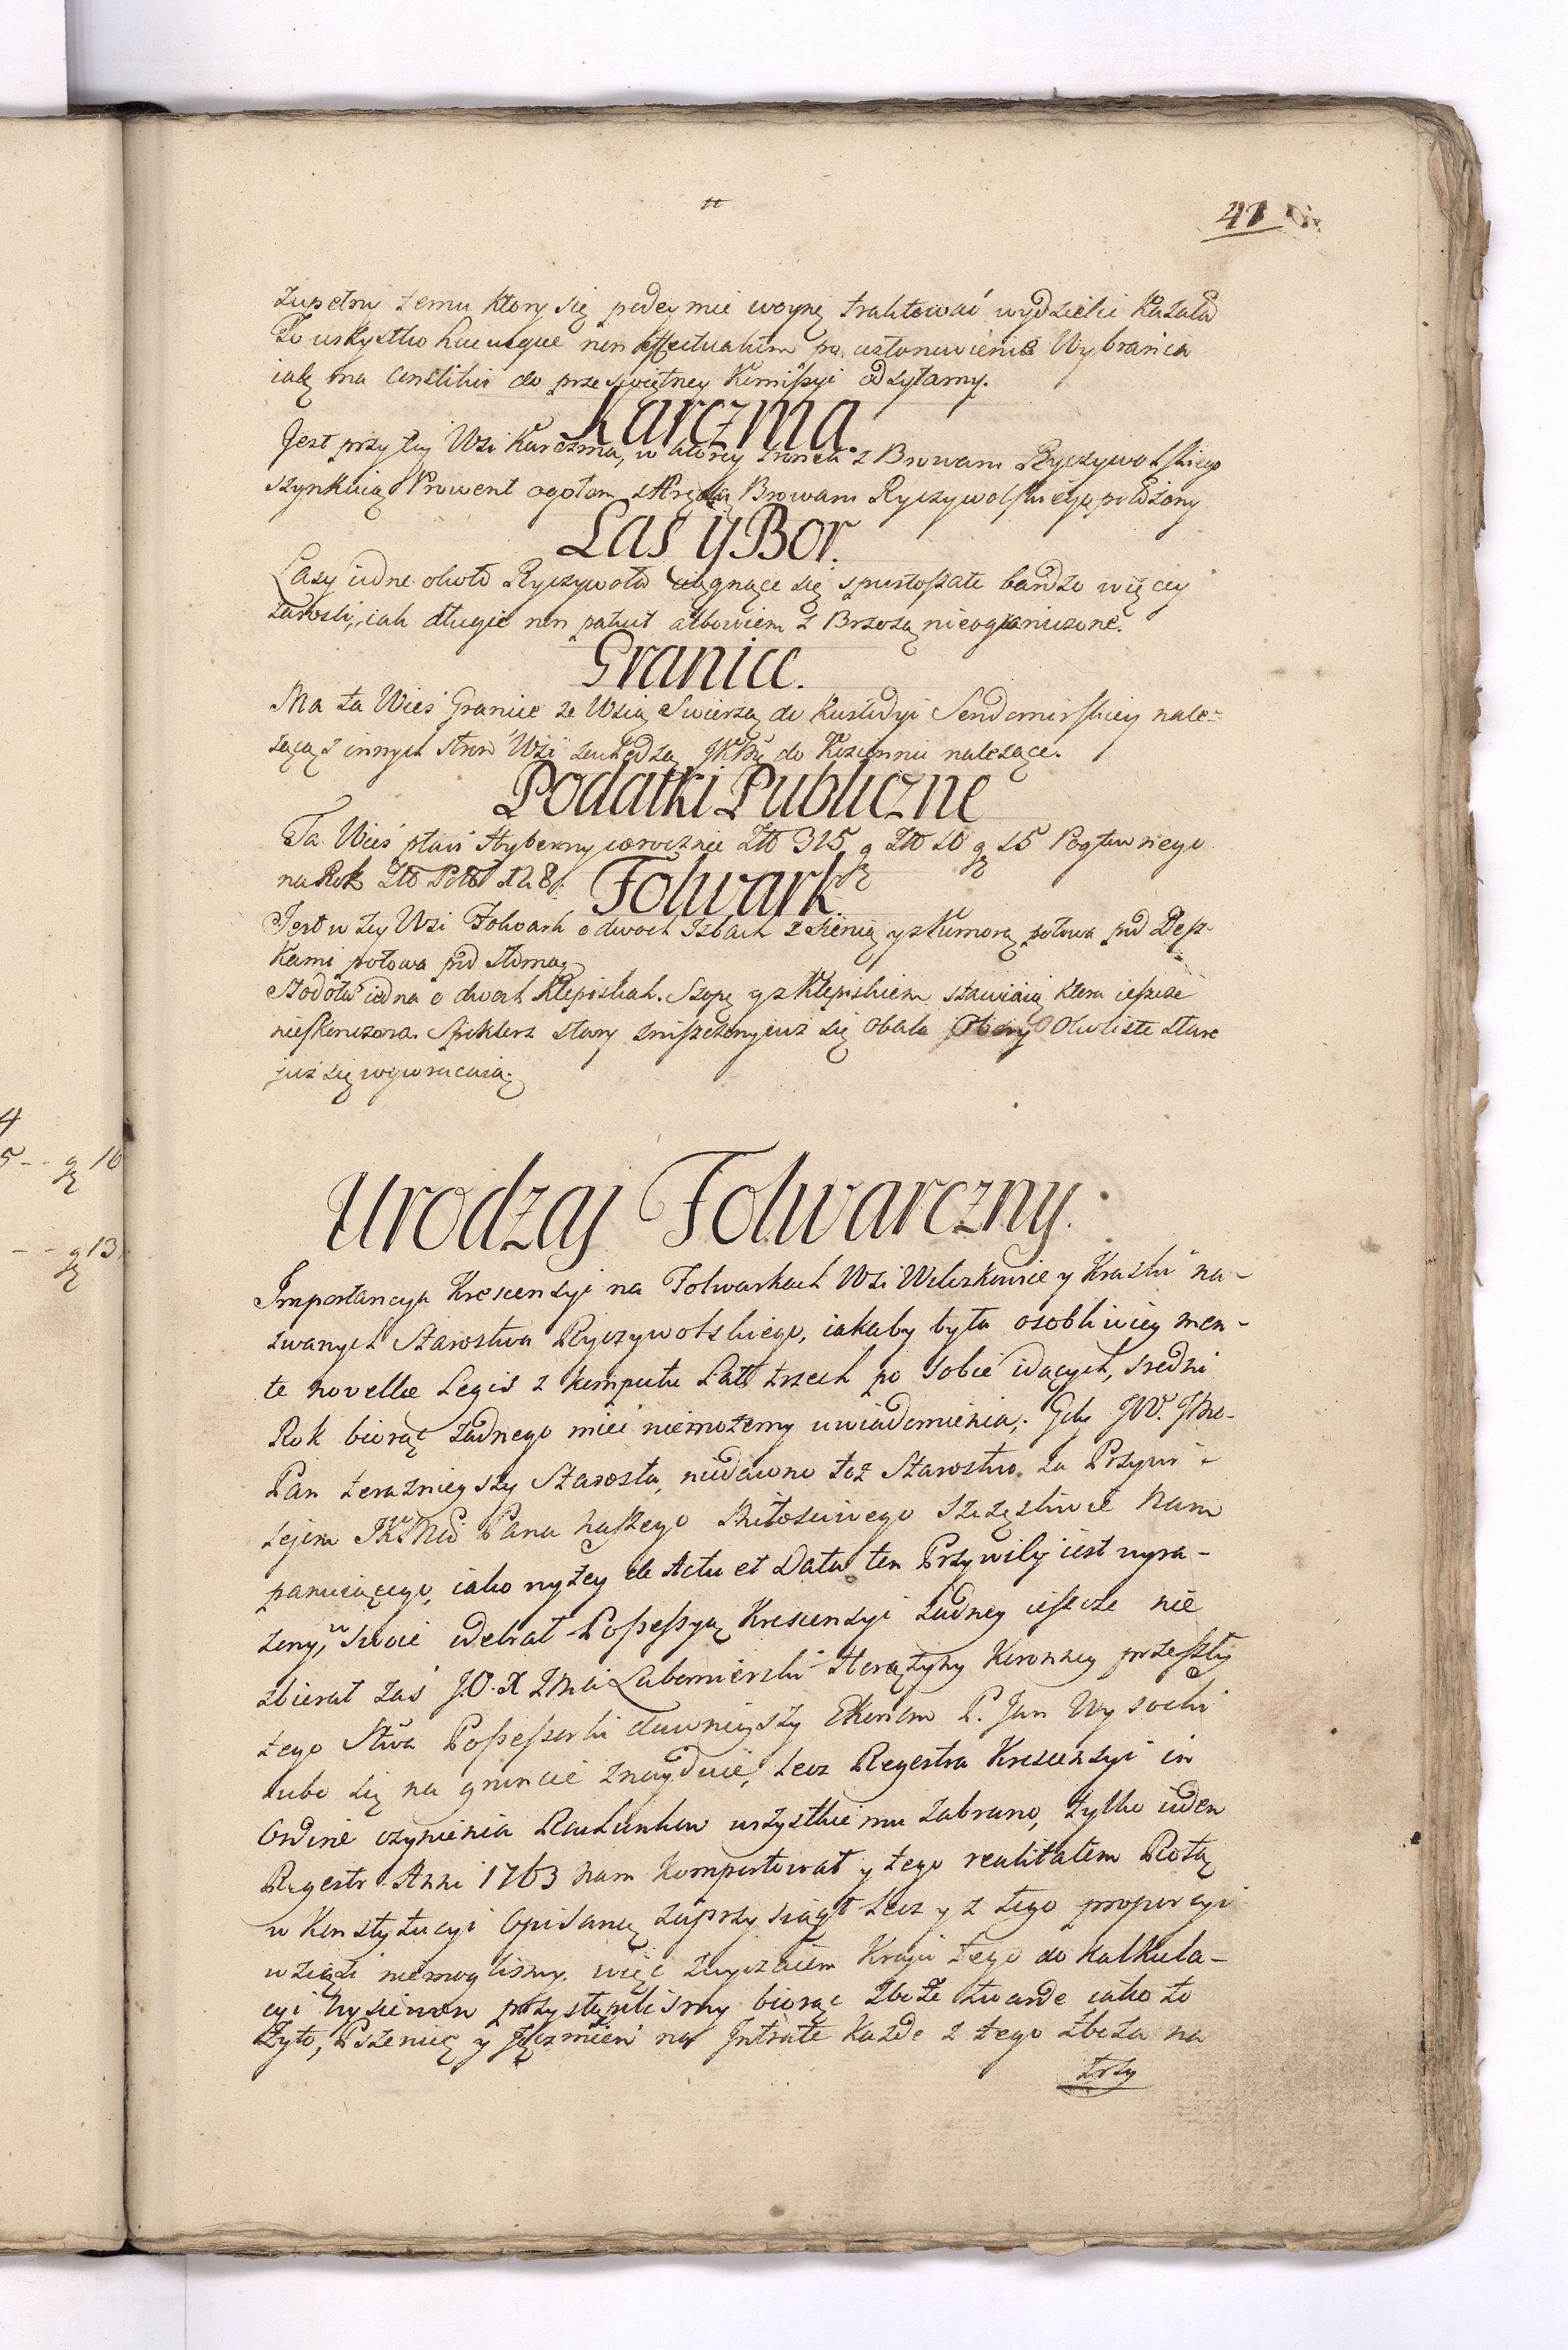 47
zupełny temu ktory się podeymie woynę traktować wydzielić kazała
To wszystko hucusque non effectuatum, po ustanowienie Wybrańca
iako ma Censitui do przeświętney Komißyi odsyłamy.
Karczma.
Jest przy tey Wsi Karczma, w ktorey trunek z Browaru Ryczywolskiego
szynkuią Prowent ogołem z Browaru Ryczywolskiego położony
Las y Bor.
Lasy iedne około Ryczywoła ciągnące się spustoszałe bardzo więcey
zarośli, iak długie non patuit albowiem z Brzozą nieograniczone.
Granice.
Ma ta Wieś Granice ze Wsią Swierzą do Kustodyi Sendomirskiey nale=
żącą z innych stron Wsi zachodzą JKMci do Koziennic należące.
Podatki Publiczne
Ta Wieś płaci Hyberny corocznie Złł 315 g Złł 10 g 15 Pogłownego
na Rok Złł Poll 128.
Folwark.
Jest w tey Wsi Folwark o dwoch Izbach z sienią y z Kumorą połowa pod Desz-
kami połowa pod słomą
Stodoła iedna o dwoch klepiskach. Szopę y z klepiskiem stawiaią ktora ieszcze
nieskonczona. Spiklerz stary zniszczony iuż się obala Obory Okoliste stare
już się wywracaią.
Urodzaj Folwarczny.
Importancya Krescensyi na Folwarkach Wsi Wilczkowice y Kraski na-
zwanych Starostwa Ryczywolskiego, iakaby była osobliwiey men-
te novellæ Legis z komputu Latt trzech po sobie idących, średni
Rok biorąc żadnego mieć niemożemy uwiadomienia; Gdy JW. Jmć
Pan terazniejszy Starosta, niedawno toż Starostwo za Przywi-
lejem JKMci Pana naszego Miłościwego szczęśliwie nam
panuiącego, iako wyżey de Actu et Data ten Przywiley iest wyra-
żony, w swoie odebrał Poßeßyą Krescensyi żadney ieszcze nie
zbierał zaś J.O.X JMci Lubomierski Chorążyny Koronney przeszły
tego Stwa Poßeßorki dawnieyszy Ekonom P. Jan Wysocki
lubo się na gruncie znayduie, lecz Regestra Krescensyi in
Ordine czynienia Rachunkow wszystkie mu zabrano, tylko ieden
Regestr Anni 1763 nam komportował y tego realitatem Rotą
w Konstytucyi Opisaną zaprzysiągł lecz y z tego proporcyi
wziąść niemogliśmy. więc zwyczaiem Kraju tego do kalkula-
cyi wysiewow przystąpiliśmy biorąc Zboże twarde iako to
Żyto, Pszenicę y Jęczmień na Intratę każde z tego zboża na
trzy